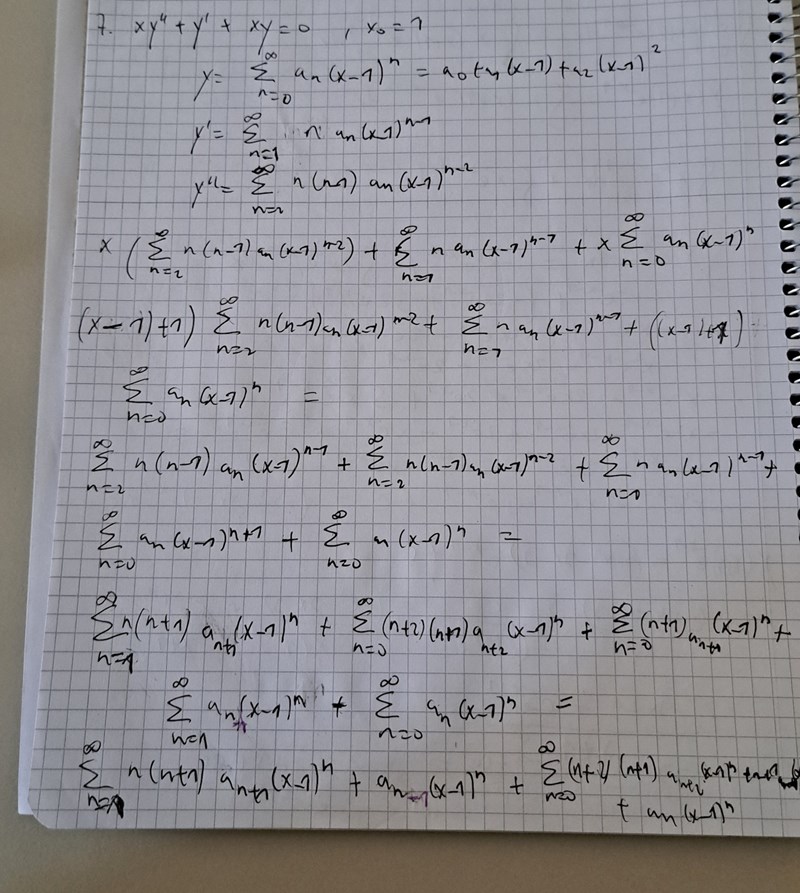 7. xy'' + y' + xy = 0 , x₀ = 1
y = ∑_{n=0}^{∞} aₙ(x-1)ⁿ = a₀ + a₁(x-1) + a₂(x-1)²
y' = ∑_{n=1}^{∞} n aₙ(x-1)ⁿ⁻¹
y'' = ∑_{n=2}^{∞} n(n-1) aₙ(x-1)ⁿ⁻²
x (∑_{n=2}^{∞} n(n-1) aₙ(x-1)ⁿ⁻²) + ∑_{n=1}^{∞} n aₙ(x-1)ⁿ⁻¹ + x ∑_{n=0}^{∞} aₙ(x-1)ⁿ
(x-1)+1) ∑_{n=2}^{∞} n(n-1) aₙ(x-1)ⁿ⁻² + ∑_{n=1}^{∞} n aₙ(x-1)ⁿ⁻¹ + ((x-1)+1) ·
∑_{n=0}^{∞} aₙ(x-1)ⁿ =
∑_{n=2}^{∞} n(n-1) aₙ(x-1)ⁿ⁻¹ + ∑_{n=2}^{∞} n(n-1) aₙ(x-1)ⁿ⁻² + ∑_{n=0}^{∞} n aₙ(x-1)ⁿ⁻¹ +
∑_{n=0}^{∞} aₙ(x-1)ⁿ⁺¹ + ∑_{n=0}^{∞} aₙ(x-1)ⁿ =
∑_{n=1}^{∞} n(n+1) aₙ₊₁(x-1)ⁿ + ∑_{n=0}^{∞} (n+2)(n+1) aₙ₊₂(x-1)ⁿ + ∑_{n=0}^{∞} (n+1) aₙ₊₁(x-1)ⁿ +
∑_{n=1}^{∞} aₙ₋₁(x-1)ⁿ + ∑_{n=0}^{∞} aₙ(x-1)ⁿ =
∑_{n=1}^{∞} n(n+1) aₙ₊₁(x-1)ⁿ + aₙ₋₁(x-1)ⁿ + ∑_{n=0}^{∞} (n+2)(n+1) aₙ₊₂(x-1)ⁿ +
+ aₙ(x-1)ⁿ